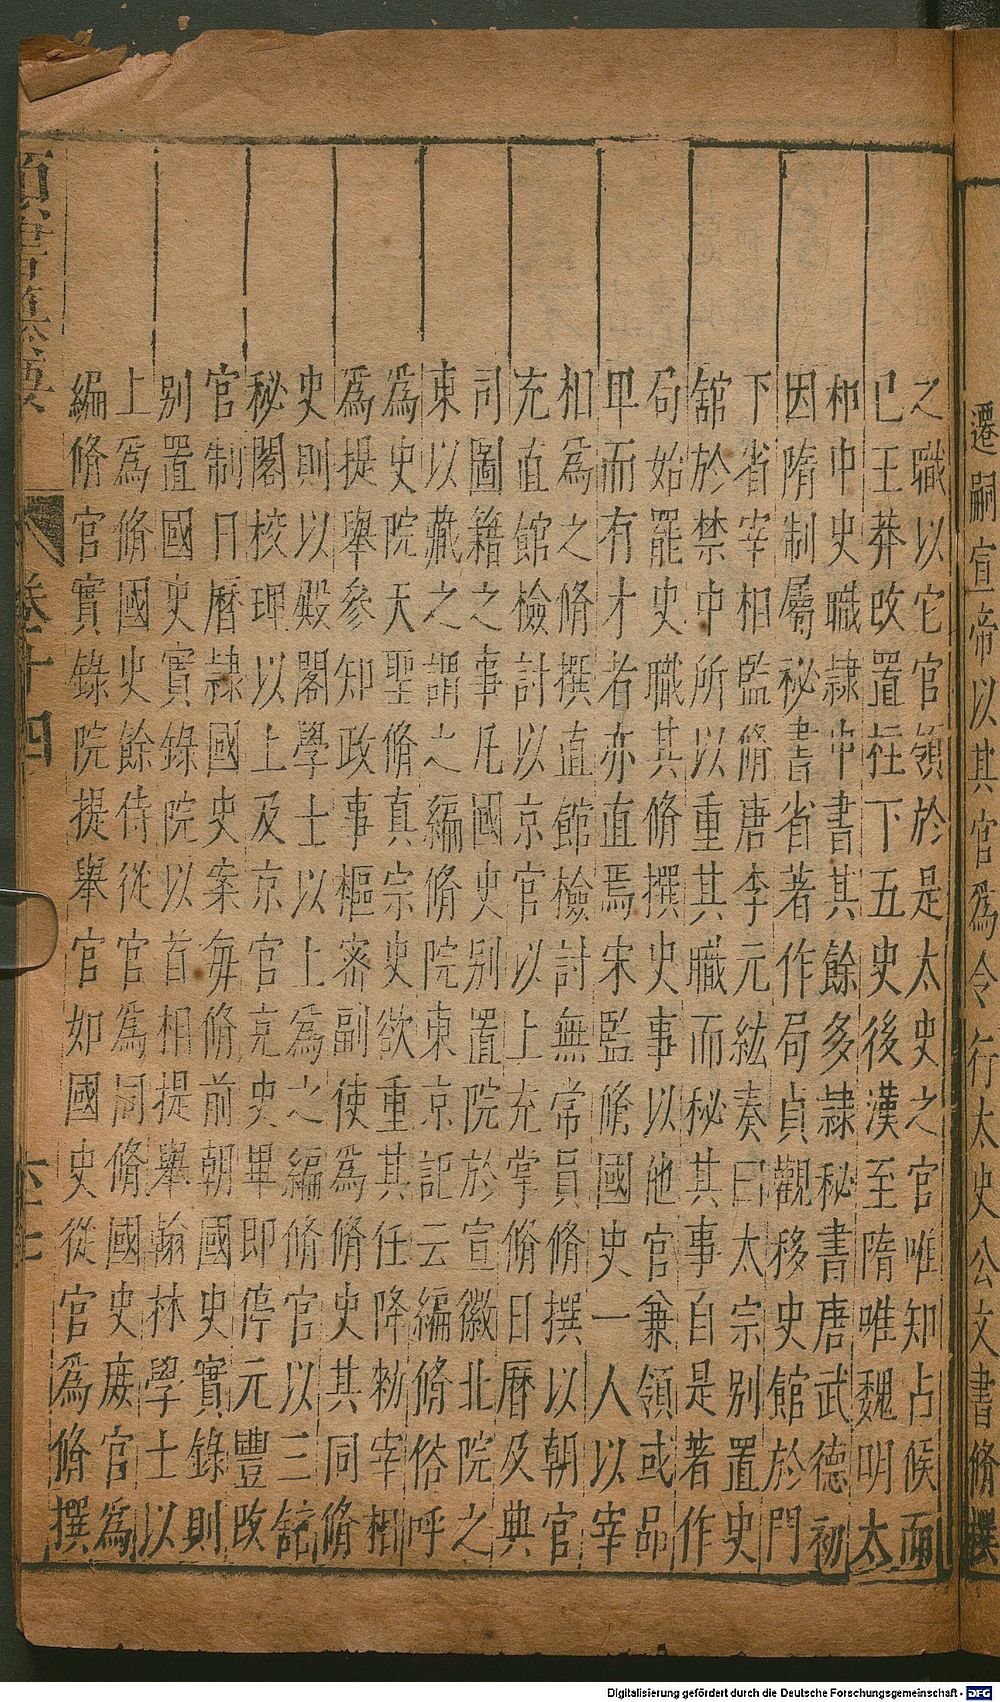 遷嗣宣帝以其官爲令行太史公文書修撰
之職以它官領於是太史之官唯知占候而
已王莽改置柱下五史後漢至隋唯魏明太
和中史職隷中書其餘多隷秘書唐武德初
因隋制屬秘書省著作局貞觀移史館於門
下省宰相監脩唐李元紘奏曰太宗別置史
舘於禁中所以重其職而秘其事自是著作
局始罷史職其脩撰史事以他官兼領或品
卑而有才者亦直焉宋監脩國史一人以宰
相爲之脩撰直館檢討無常員脩撰以朝官
充直館檢討以京官以上充掌脩日曆及典
司圖籍之事凡國史別置院於宣徽北院之
東以藏之謂之編脩院東京記云編脩俗呼
爲史院天聖脩真宗史欲重其任降勑宰相
爲提舉參知政事樞密副使爲脩史其同脩
史則以殿閣學士以上爲之編脩官以三舘
秘閣校理以上及京官充史畢即停元豐改
官制日曆隷國史案每脩前朝國史實錄則
別置國史實錄院以首相提舉翰林學士以
上爲脩國史餘侍從官爲同脩國史庶官爲
編脩官實錄院提舉官如國史從官爲脩撰
類書纂要 卷十四
Digitalisierung gefördert durch die Deutsche Forschungsgemeinschaft - DFG